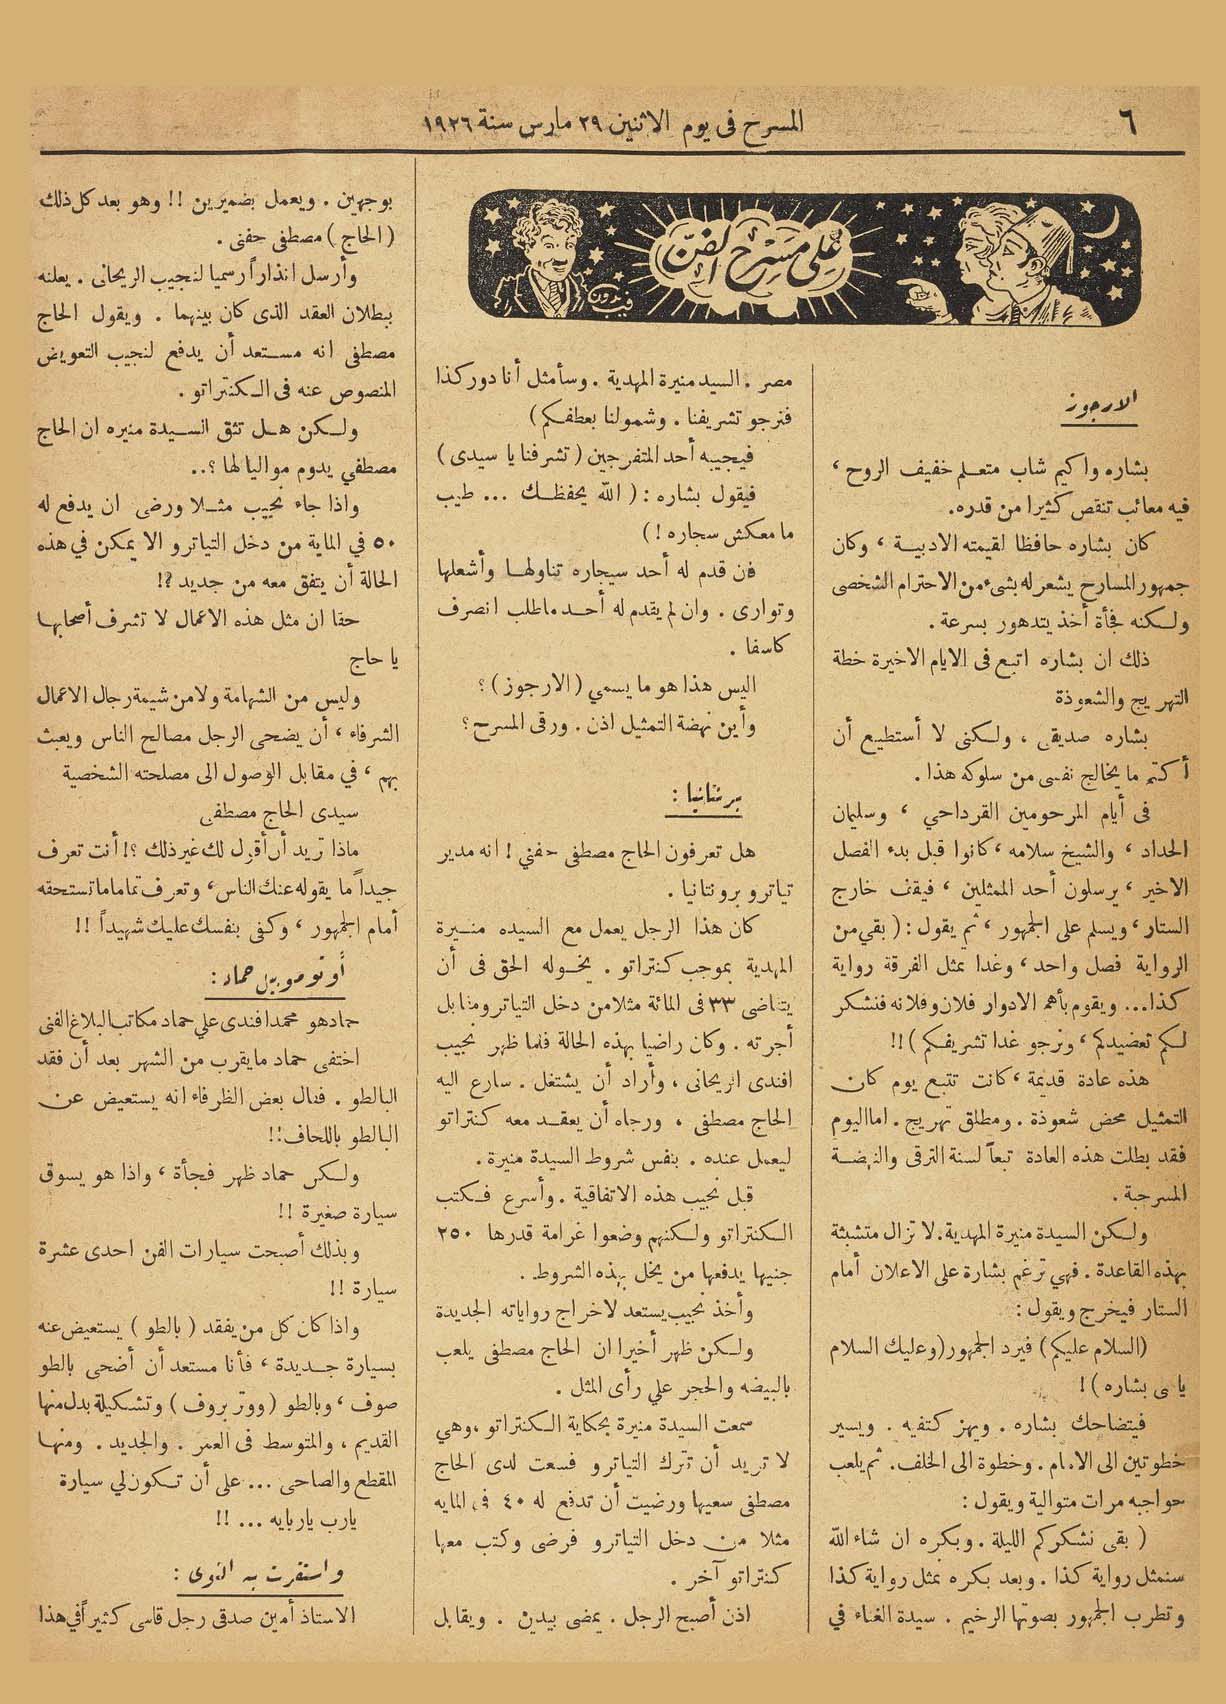 ٦
المسرح فى يوم الاثنين ٢٩ مارس سنة ١٩٢٦
على مسرح الفن
الارجوز
بشاره واكيم شاب متعلم خفيف الروح ،
فيه معائب تنقص كثيرا من قدره.
كان بشاره حافظا لقيمته الادبية ، وكان
جمهور المسارح يشعر له بشىء من الاحترام الشخصى
ولكنه فجأة أخذ يتدهور بسرعة .
ذلك ان بشاره اتبع فى الايام الاخيرة خطة
التهريج والشعوذة
بشاره صديقى ، ولكنى لا أستطيع أن
أكتم ما يخالج نفسى من سلوكه هذا .
فى أيام المرحومين القرداحي ، وسليمان
الحداد ، والشيخ سلامه ، كانوا قبل بدء الفصل
الاخير ، يرسلون أحد الممثلين ، فيقف خارج
الستار ، ويسلم على الجمهور ، ثم يقول : ( بقي من
الرواية فصل واحد ، وغدا تمثل الفرقة رواية
كذا... ويقوم بأهم الادوار فلان وفلانه فنشكر
لكم تعضيدكم ، ونرجو غدا تشريفكم )!!
هذه عادة قديمة ، كانت تتبع يوم كان
التمثيل محض شعوذة . ومطلق تهريج . اما اليوم
فقد بطلت هذه العادة تبعاً لسنة الترقى والنهضة
المسرحية .
ولكن السيدة منيرة المهدية. لا تزال متشبثة
بهذه القاعدة . فهي ترغم بشارة على الاعلان أمام
الستار فيخرج ويقول :
(السلام عليكم) فيرد الجمهور (وعليك السلام
يا سى بشاره )!
فيتضاحك بشاره . ويهز كتفيه . ويسير
خطوتين الى الامام . وخطوة الى الخلف . ثم يلعب
حواجبه مرات متوالية ويقول :
( بقى نشكركم الليلة . وبكره ان شاء الله
سنمثل رواية كذا . وبعد بكره نمثل رواية كذا
وتطرب الجمهور بصوتها الرخيم . سيدة الغناء في
مصر . السيد منيرة المهدية . وسأمثل أنا دور كذا
فنرجو تشريفنا . وشمولنا بعطفكم )
فيجيبه أحد المتفرجين ( تشرفنا يا سيدى )
فيقول بشاره : ( الله يحفظك ... طيب
ما معكش سجاره ! )
فان قدم له أحد سيجاره تناولها وأشعلها
وتوارى . وان لم يقدم له أحد ما طلب انصرف
كاسفا .
اليس هذا هو ما يسمي (الارجوز) ؟
وأين نهضة التمثيل اذن . ورقى المسرح ؟
برنتانيا :
هل تعرفون الحاج مصطفى حفني ! انه مدير
تياترو برونتانيا .
كان هذا الرجل يعمل مع السيده منيرة
المهدية بموجب كنتراتو . يخوله الحق فى أن
يتقاضى ٣٣ فى المائة مثلا من دخل التياترو مقابل
أجرته . وكان راضيا بهذه الحالة فلما ظهر نجيب
افندى الريحانى ، وأراد أن يشتغل . سارع اليه
الحاج مصطفى ، ورجاه أن يعقد معه كنتراتو
ليعمل عنده . بنفس شروط السيدة منيرة .
قبل نجيب هذه الاتفاقية . وأسرع فكتب
الكنتراتو ولكنهم وضعوا غرامة قدرها ٢٥٠
جنيها يدفعها من يخل بهذه الشروط .
وأخذ نجيب يستعد لاخراج رواياته الجديدة
ولكن ظهر أخيرا ان الحاج مصطفى يلعب
بالبيضه والحجر علي رأى المثل .
سمعت السيدة منيرة بحكاية الكنتراتو ، وهي
لا تريد أن تترك التياترو فسعت لدى الحاج
مصطفى سعيها ورضيت أن تدفع له ٤٠ فى المايه
مثلا من دخل التياترو فرضى وكتب معها
كنتراتو آخر .
اذن أصبح الرجل . يمضى بيدين . ويقابل
بوجهين . ويعمل بضميرين !! وهو بعد كل ذلك
( الحاج ) مصطفى حفنى .
وأرسل انذاراً رسميا لنجيب الريحانى . يعلنه
ببطلان العقد الذى كان بينهما . ويقول الحاج
مصطفى انه مستعد أن يدفع لنجيب التعويض
المنصوص عنه فى الكنتراتو .
ولكن هل تثق السيدة منيره ان الحاج
مصطفي يدوم مواليا لها ؟..
واذا جاء نجيب مثلا ورضى ان يدفع له
٥٠ في الماية من دخل التياترو الا يمكن في هذه
الحالة أن يتفق معه من جديد ؟!
حقا ان مثل هذه الاعمال لا تشرف أصحابها
يا حاج
وليس من الشهامة ولا من شيمة رجال الاعمال
الشرفاء ، أن يضحى الرجل مصالح الناس ويعبث
بهم ، في مقابل الوصول الى مصلحته الشخصية
سيدى الحاج مصطفى
ماذا تريد أن أقول لك غير ذلك ؟! أنت تعرف
جيداً ما يقوله عنك الناس ، وتعرف تماما ما تستحقه
أمام الجمهور ، وكفى بنفسك عليك شهيداً !!
أوتوموبيل حماد :
حماد هو محمد افندى علي حماد مكاتب البلاغ الفنى
اختفى حماد ما يقرب من الشهر بعد أن فقد
البالطو . فقال بعض الظرفاء انه يستعيض عن
البالطو باللحاف !!
ولكن حماد ظهر فجأة ، واذا هو يسوق
سيارة صغيرة !!
وبذلك أصبحت سيارات الفن احدى عشرة
سيارة !!
واذا كان كل من يفقد ( بالطو ) يستعيض عنه
بسيارة جديدة ، فأنا مستعد أن أضحى بالطو
صوف ، وبالطو (ووتر بروف ) وتشكيلة بدل منها
القديم ، والمتوسط فى العمر . والجديد . ومنها
المقطع والصاحى ... على أن تكون لي سيارة
يارب ياربايه ... !!
واستقرت به النوى :
الاستاذ أمين صدقى رجل قاسى كثيراً في هذا